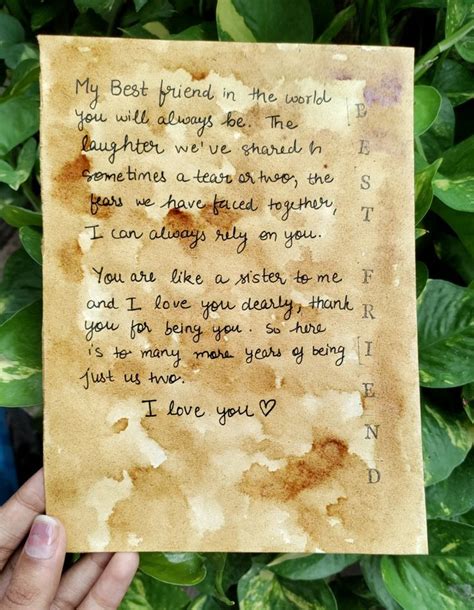 My Best friend in the world
you will always be. The
laughter we've shared h
sometimes a tear or two, the
fears we have faced together,
I can always rely on you.
You are like a sister to me
and I love you dearly, thank
you for being you. So here
is to many more years of being
just us two.
I love you ♡
BEST FRIEND